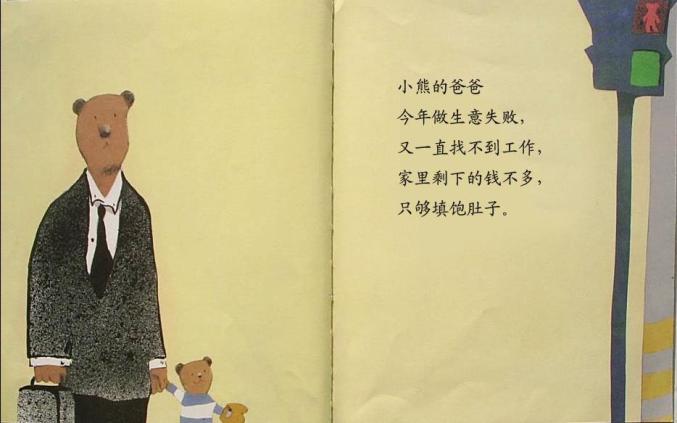 小熊的爸爸
今年做生意失败，
又一直找不到工作，
家里剩下的钱不多，
只够填饱肚子。